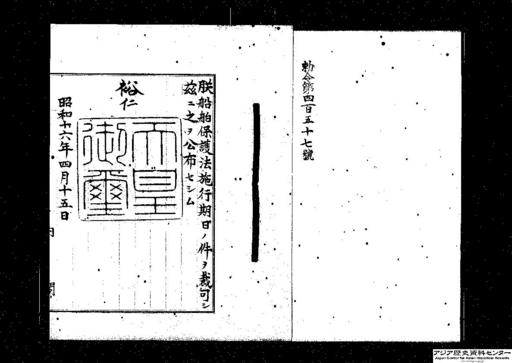 勅令第四百五十七號
朕船舶保護法施行期日ノ件ヲ裁可シ
茲ニ之ヲ公布セシム
裕仁
天皇
御璽
昭和十六年四月十五日
アジア歴史資料センター
Japan Center for Asian Historical Records